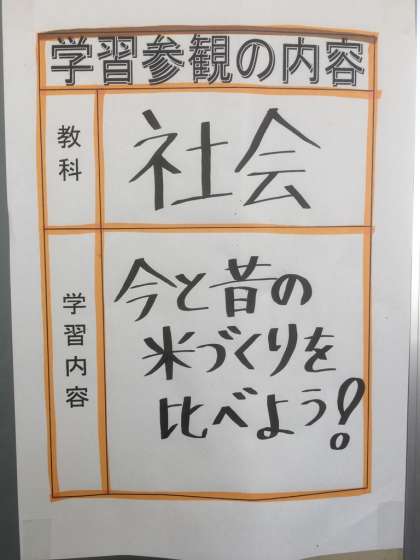 学習参観の内容
教科
社会
学習内容
今と昔の
米づくりを
比べよう!